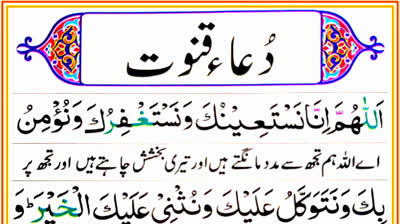 دُعاء قنوت
اَللّٰهُمَّ اِنَّا نَسْتَعِيْنُكَ وَنَسْتَغْفِرُكَ وَنُؤْمِنُ
اے اللہ ہم تجھ سے مدد مانگتے ہیں اور تیری بخشش چاہتے ہیں اور تجھ پر
بِكَ وَنَتَوَكَّلُ عَلَيْكَ وَنُثْنِيْ عَلَيْكَ الْخَيْرَ ؕ وَ